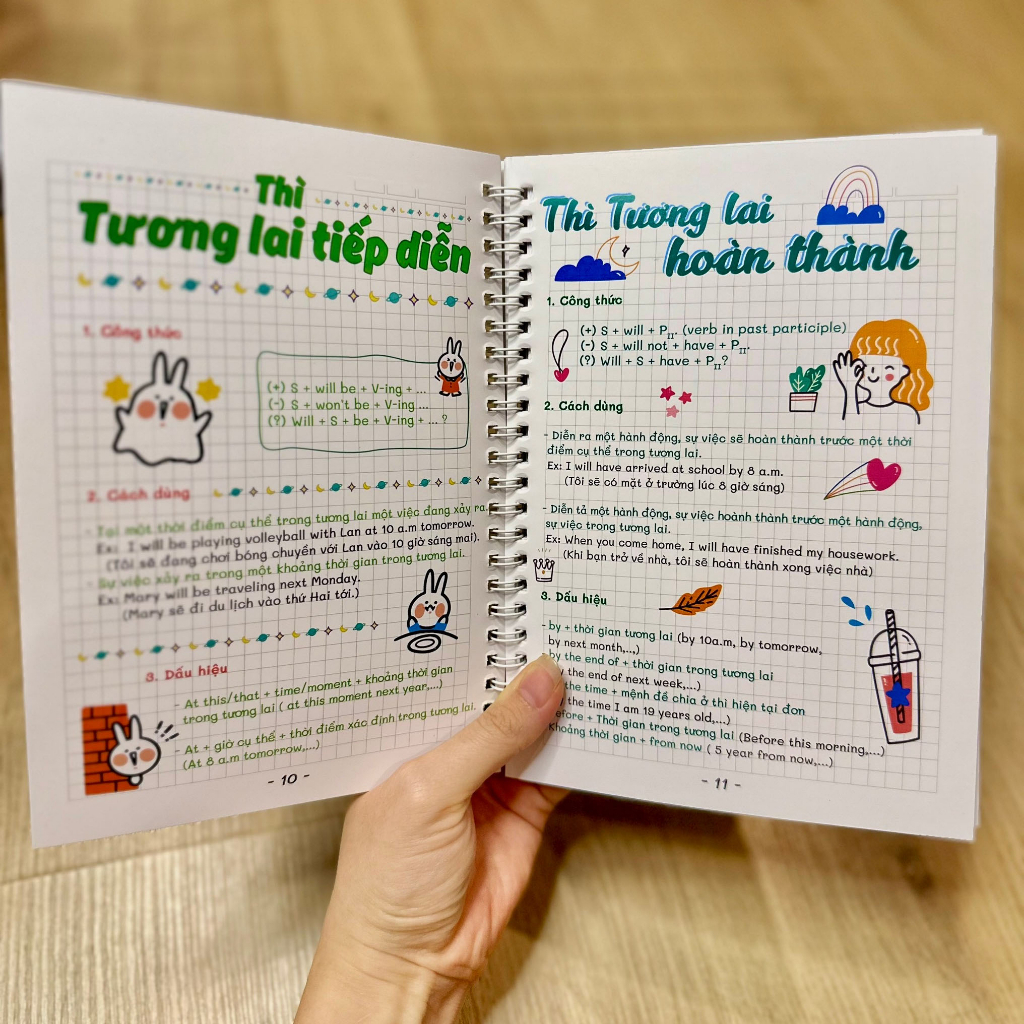 Thì
Tương lai tiếp diễn
1. Công thức
(+) S + will be + V-ing + ...
(-) S + won't be + V-ing ...
(?) Will + S + be + V-ing + ... ?
2. Cách dùng
- Tại một thời điểm cụ thể trong tương lai một việc đang xảy ra.
Ex: I will be playing volleyball with Lan at 10 a.m tomorrow.
(Tôi sẽ đang chơi bóng chuyền với Lan vào 10 giờ sáng mai).
- Sự việc xảy ra trong một khoảng thời gian trong tương lai.
Ex: Mary will be traveling next Monday.
(Mary sẽ đi du lịch vào thứ Hai tới.)
3. Dấu hiệu
- At this/that + time/moment + khoảng thời gian
trong tương lai ( at this moment next year,...)
- At + giờ cụ thể + thời điểm xác định trong tương lai.
(At 8 a.m tomorrow,...)
- 10 -
Thì Tương lai
hoàn thành
1. Công thức
(+) S + will + PII. (verb in past participle)
(-) S + will not + have + PII.
(?) Will + S + have + PII?
2. Cách dùng
- Diễn ra một hành động, sự việc sẽ hoàn thành trước một thời
điểm cụ thể trong tương lai.
Ex: I will have arrived at school by 8 a.m.
(Tôi sẽ có mặt ở trường lúc 8 giờ sáng)
- Diễn tả một hành động, sự việc hoành thành trước một hành động,
sự việc trong tương lai.
Ex: When you come home, I will have finished my housework.
(Khi bạn trở về nhà, tôi sẽ hoàn thành xong việc nhà)
3. Dấu hiệu
- by + thời gian tương lai (by 10a.m, by tomorrow,
by next month,..,)
by the end of + thời gian trong tương lai
the end of next week,...)
the time + mệnh đề chia ở thì hiện tại đơn
the time I am 19 years old,...)
+ Thời gian trong tương lai (Before this morning,...)
Khoảng thời gian + from now ( 5 year from now,...)
- 11 -